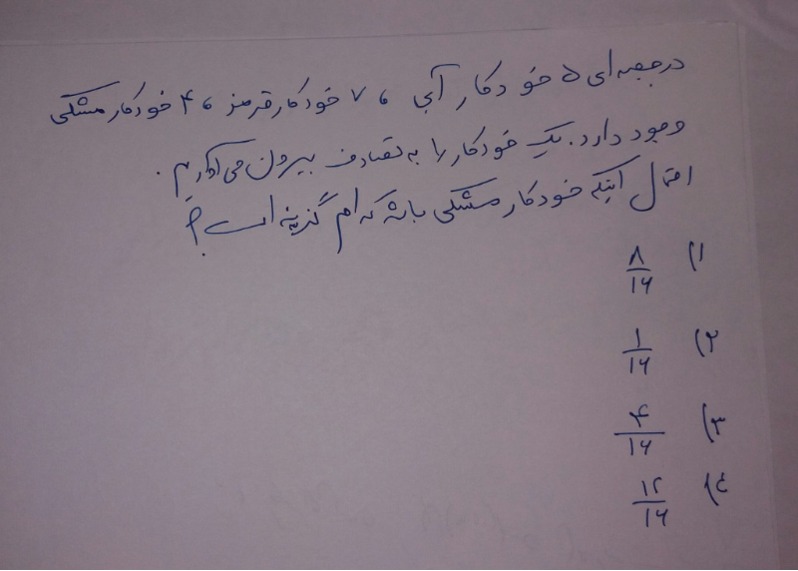 در جعبه ای ۵ خودکار آبی ، ۷ خودکار قرمز ، ۴ خودکار مشکی
وجود دارد. یک خودکار را به تصادف بیرون می آوریم.
احتمال اینکه خودکار مشکی باشد کدام گزینه است؟
۱) ۸/۱۶
۲) ۱/۱۶
۳) ۴/۱۶
۴) ۱۲/۱۶